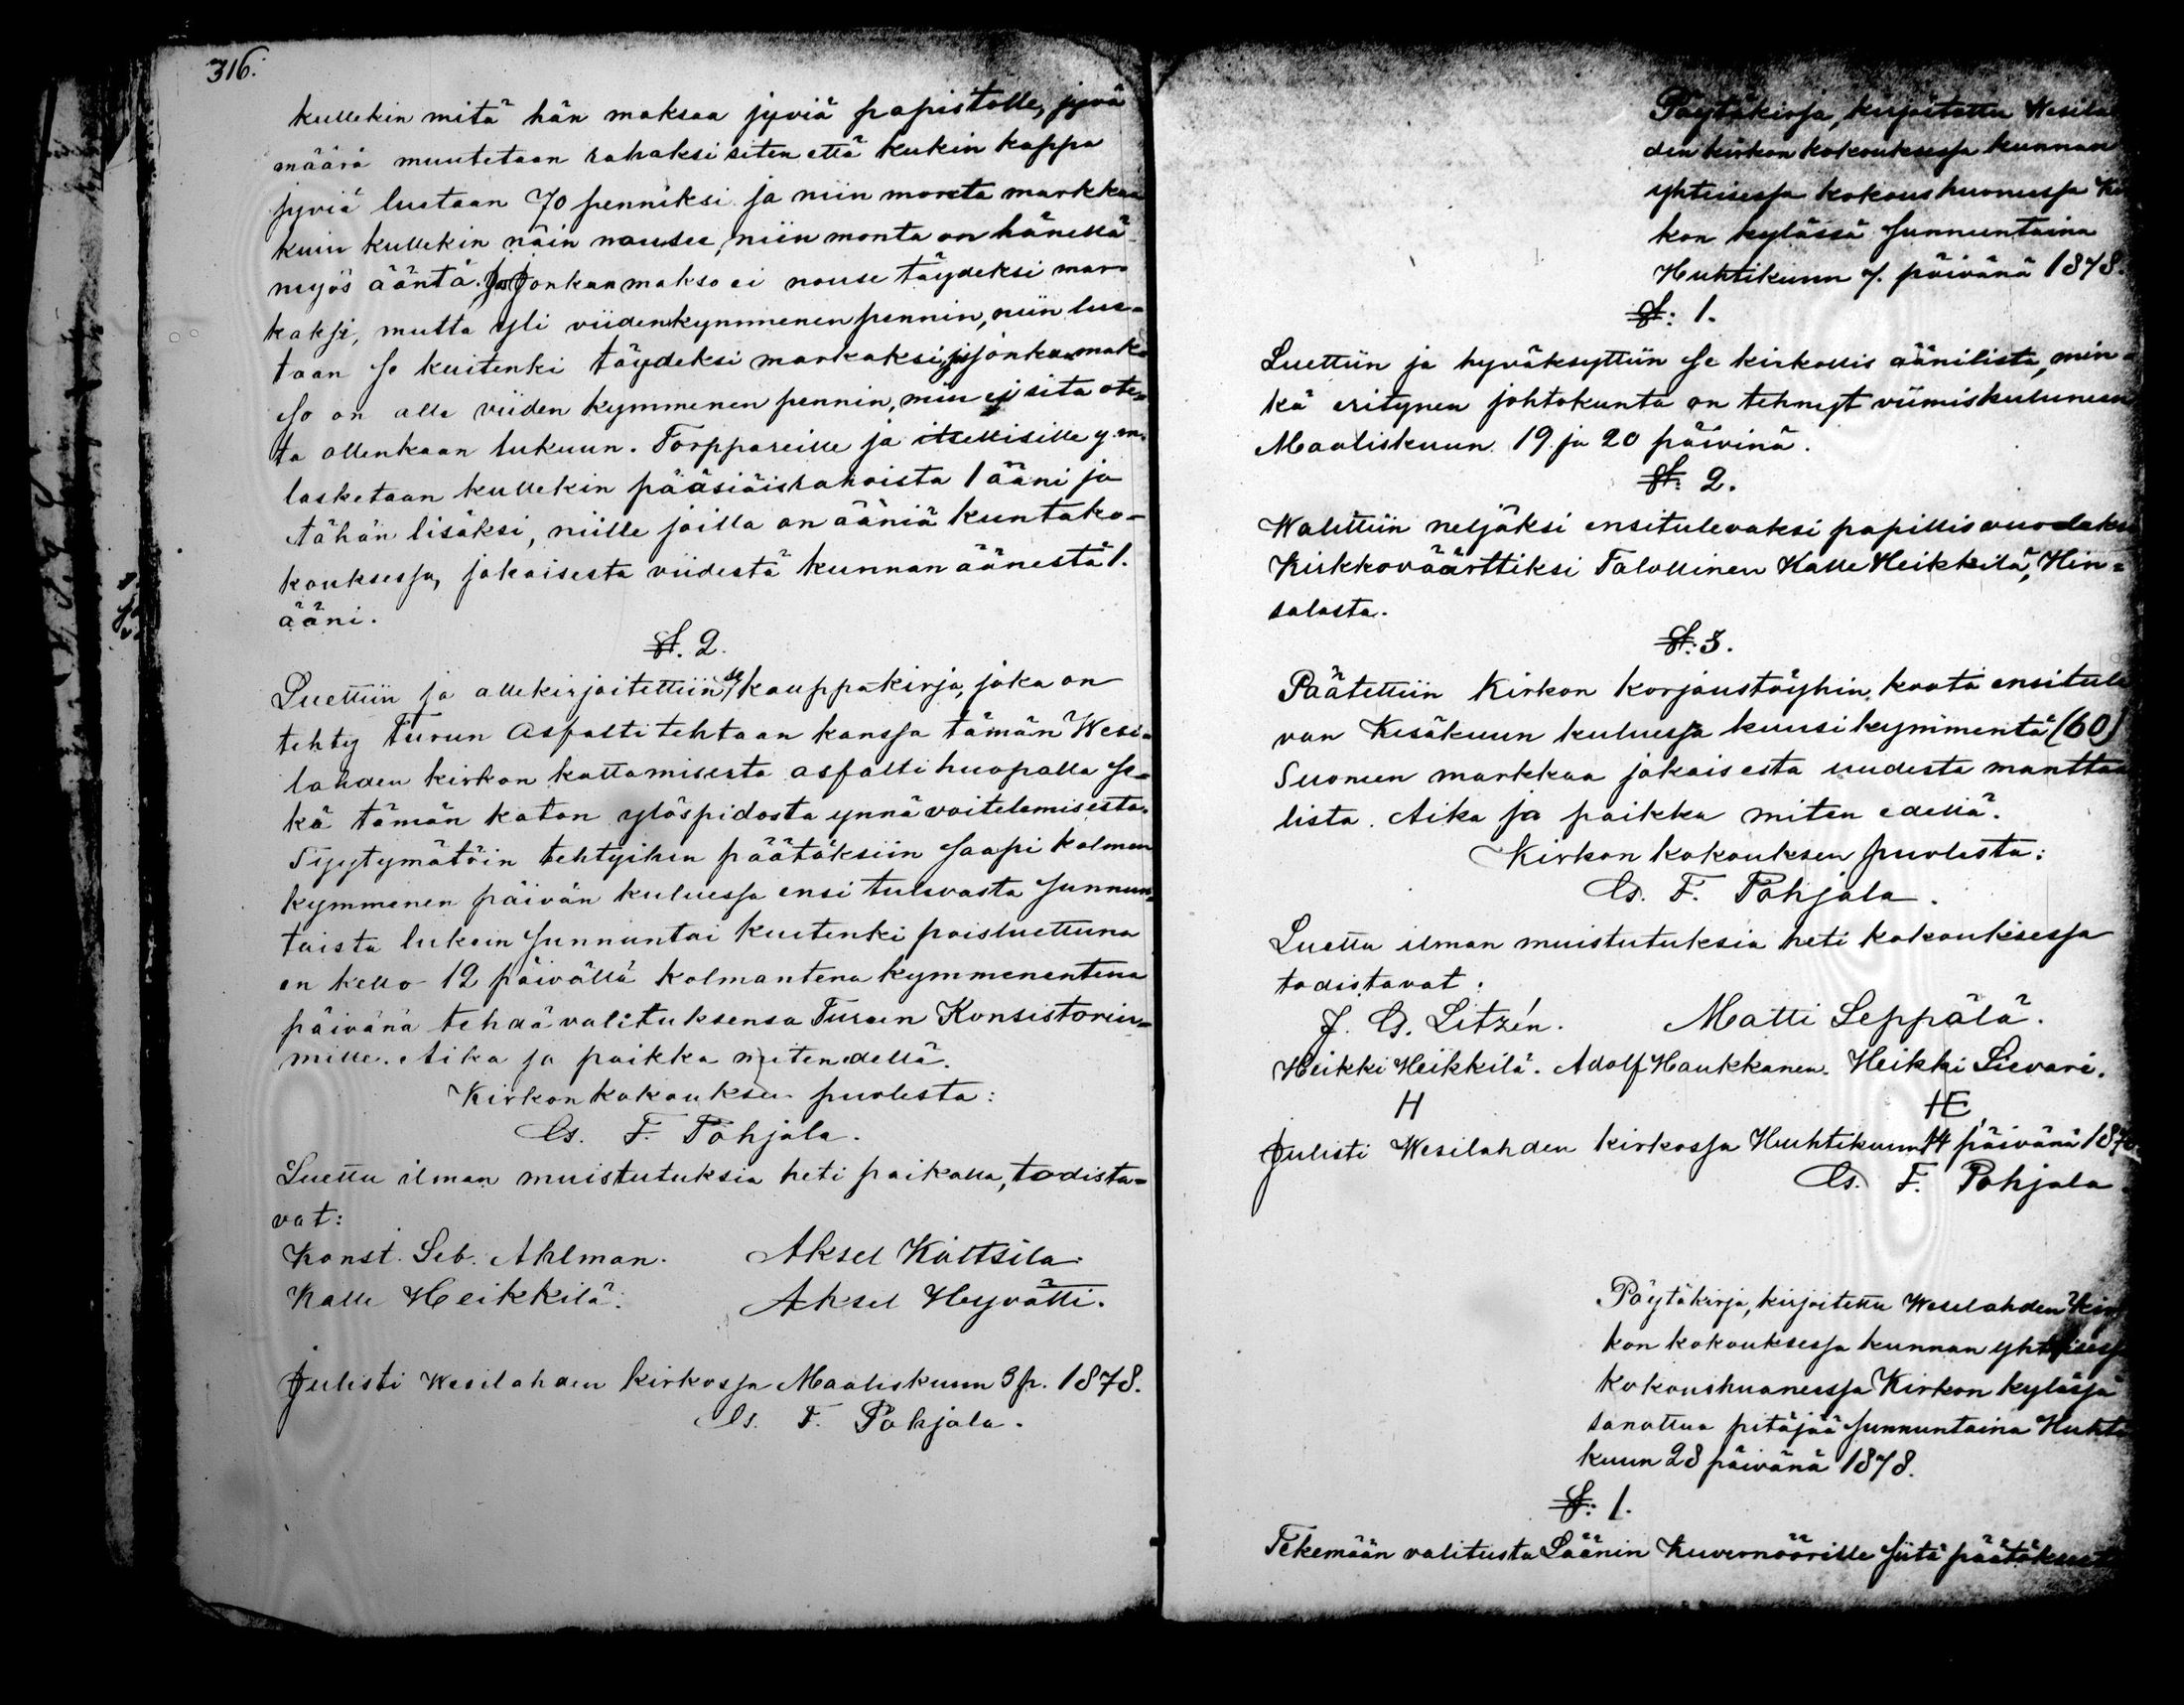 316.
kullekin mitä hän maksaa jyviä papistolle, jyvä
määrä muutetaan rahaksi siten että kukin kappa
jyviä luetaan 70 penniksi ja niin monta markkaa
kuin kullekin näin nousee, niin monta on hänellä
myös ääntä. Jos jonkun makso ei nouse täydeksi mar-
kaksi, mutta yli viidenkymmenen pennin, niin lue-
taan se kuitenki täydeksi markaksi, jos jonkun mak-
so on alle viiden kymmenen pennin, niin ei sitä ote-
ta ollenkaan lukuun. Torppareille ja itsellisille y.m.
lasketaan kullekin pääsiäisrahoista 1 ääni ja
tähän lisäksi, niille joilla on ääniä kuntako-
kouksessa, jokaisesta viidestä kunnan äänestä 1.
ääni.
§. 2.
Luettiin ja allekirjoitettiin se kauppakirja, joka on
tehty Turun Asfalti tehtaan kanssa tämän Wesi-
lahden kirkon kattamisesta asfalti huopalla se-
kä tämän katon ylöspidosta ynnä voitelemisesta.
Tyytymätöin tehtyihin päätöksiin saapi kolmen
kymmenen päivän kuluessa ensi tulevasta sunnun-
taista lukein sunnuntai kuitenki poisluettuna
en kello 12 päivällä kolmantena kymmenentenä
päivänä tehdä valituksensa Turun Konsistoriu-
mille. Aika ja paikka miten edellä.
Kirkon kokouksen puolesta:
Gs. F. Pohjala.
Luettu ilman muistutuksia heti paikalla, todista-
vat:
Konst. Seb. Ahlman. Aksel Kältsilä.
Kalle Heikkilä. Aksel Hyvätti.
Julisti Wesilahden kirkossa Maaliskuun 3 p. 1878.
Gs. F. Pohjala.
Pöytäkirja, kirjoitettu Wesilah
den kirkon kokouksessa kunnan
yhteisessä kokoushuoneessa Kir
kon kylässä sunnuntaina
Huhtikuun 7. päivänä 1878.
§. 1.
Luettiin ja hyväksyttiin se kirkollis äänilista, min-
kä erityinen johtokunta on tehnyt viimiskuluneen
Maaliskuun 19 ja 20 päivinä.
§. 2.
Walittiin neljäksi ensitulevaksi papillisvuodeksi
Kirkkoväärttiksi Talollinen Kalle Heikkilä, Hin-
salasta.
§. 3.
Päätettiin Kirkon korjaustöyhin koota ensitule
van Kesäkuun kuluessa kuusikymmentä (60)
Suomen markkaa jokaisesta uudesta manttaa
lista. Aika ja paikka miten edellä.
Kirkon kokouksen puolesta:
Gs. F. Pohjala.
Luettu ilman muistutuksia heti kokouksessa
todistavat:
J. G. Litzén. Matti Seppälä.
Heikki Heikkilä. Adolf Haukkanen. Heikki Sievari.
H HE
Julisti Wesilahden kirkossa Huhtikuun 14 päivänä 1878.
Gs. F. Pohjala.
Pöytäkirja, kirjoitettu Wesilahden kir
kon kokouksessa kunnan yhteisessä
kokoushuoneessa Kirkon kylässä
sanottua pitäjää sunnuntaina Huhti
kuun 28 päivänä 1878.
§. 1.
Tekemään valitusta Läänin Kuvernöörille siitä päätöksest